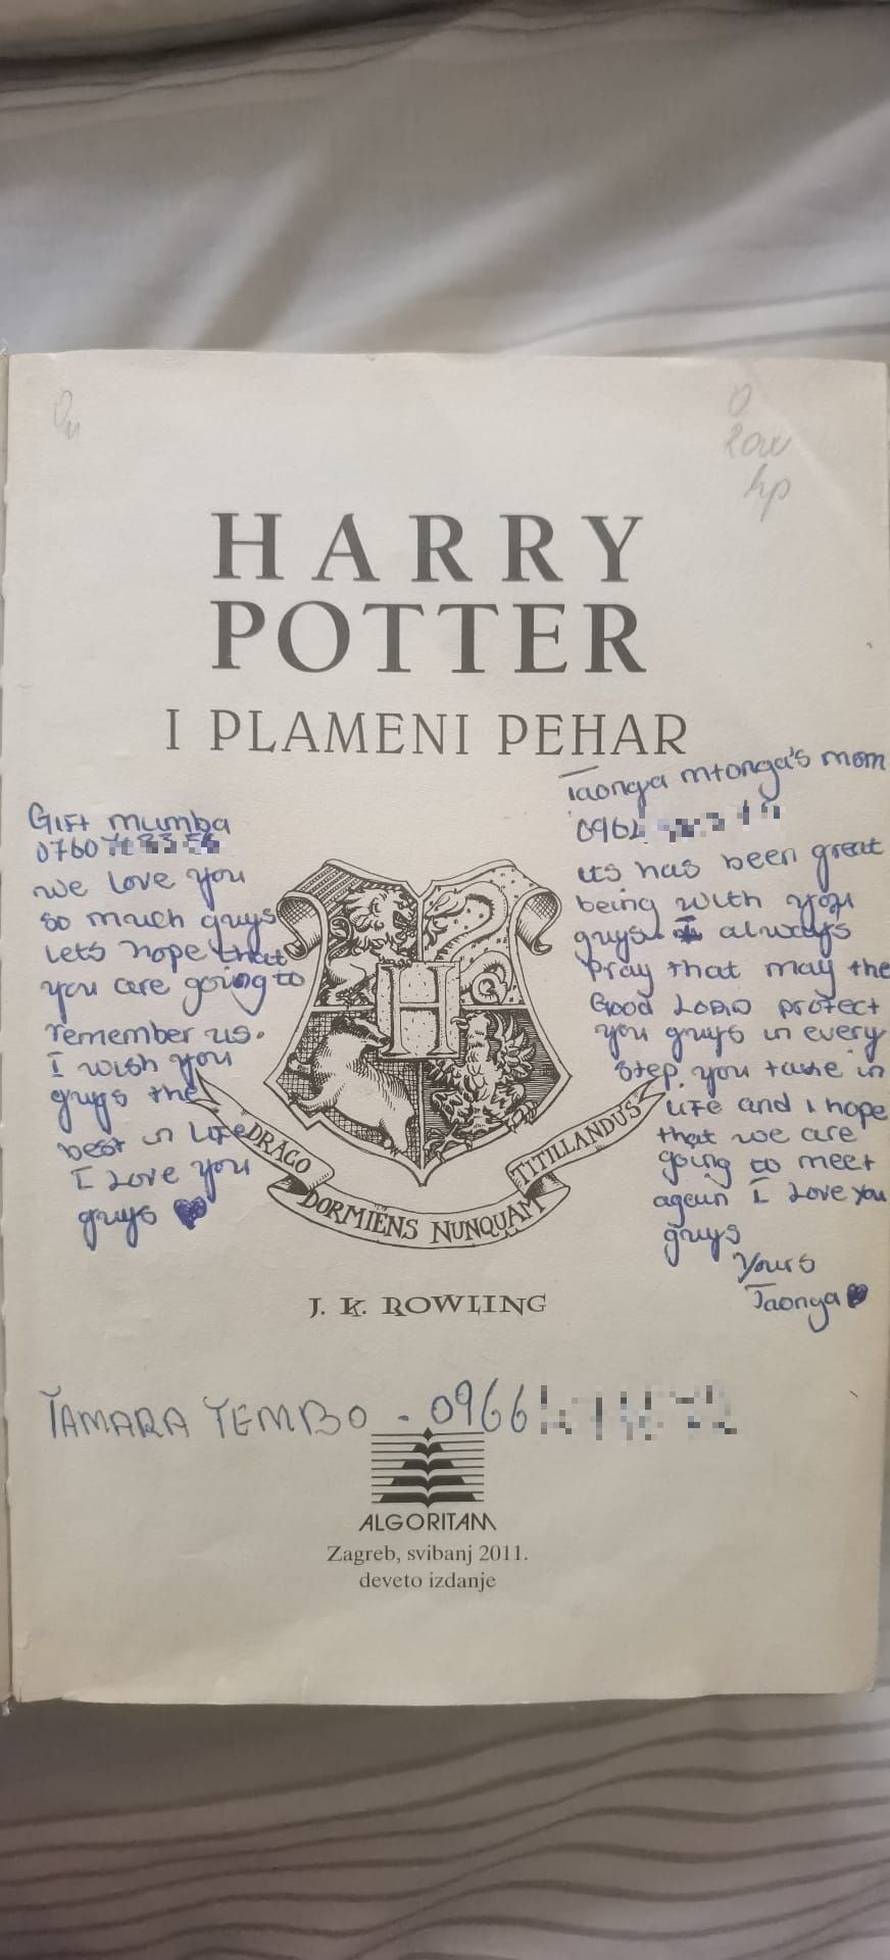 0
HARRY
POTTER
I PLAMENI PEHAR
Gift mumba
0760
we love you
so much guys
Lets hope that
you are going to
remember us.
I wish you
guys the
best in Life
I Love you
guys
Taonga mtonga's mom
096
its has been great
being with you
guys always
Pray that may the
Good LORD protect
you guys in every
step you take in
Life and I hope
that we are
going to meet
again I Love you
guys
Yours
Taonga
DRACO DORMIENS NUNQUAM TITILLANDUS
J. K. ROWLING
TAMARA TEMBO - 0966
ALGORITAM
Zagreb, svibanj 2011.
deveto izdanje